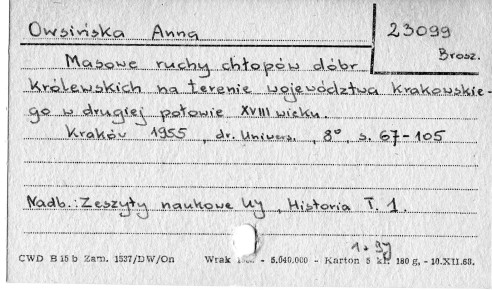 Owsińska Anna
23099
Brosz.
Masowe ruchy chłopów dóbr
królewskich na terenie województwa krakowskie-
go w drugiej połowie XVIII wieku.
Kraków 1955, dr. Univers., 8°, s. 67-105
Nadb.: Zeszyty naukowe UJ, Historia T. 1.
1+9J
CWD B 15 b Zam. 1537/DW/On Wzak - 5.040.000 - Karton 5 kl. 180 g. - 10.XII.63.